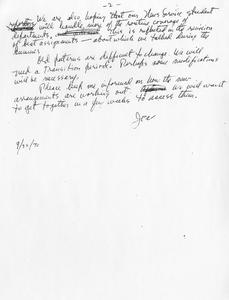 - 2 -
We are also hoping that our News Service student
will handle more of the routine coverage of
departments. This is reflected in the revision
of beat assignments — about which we talked during the
summer.
Old patterns are difficult to change. We will
need a transition period. Perhaps some modifications
will be necessary.
Please keep me informed on how the new
arrangements are working out. We will want
to get together in a few weeks to assess them.
Joe